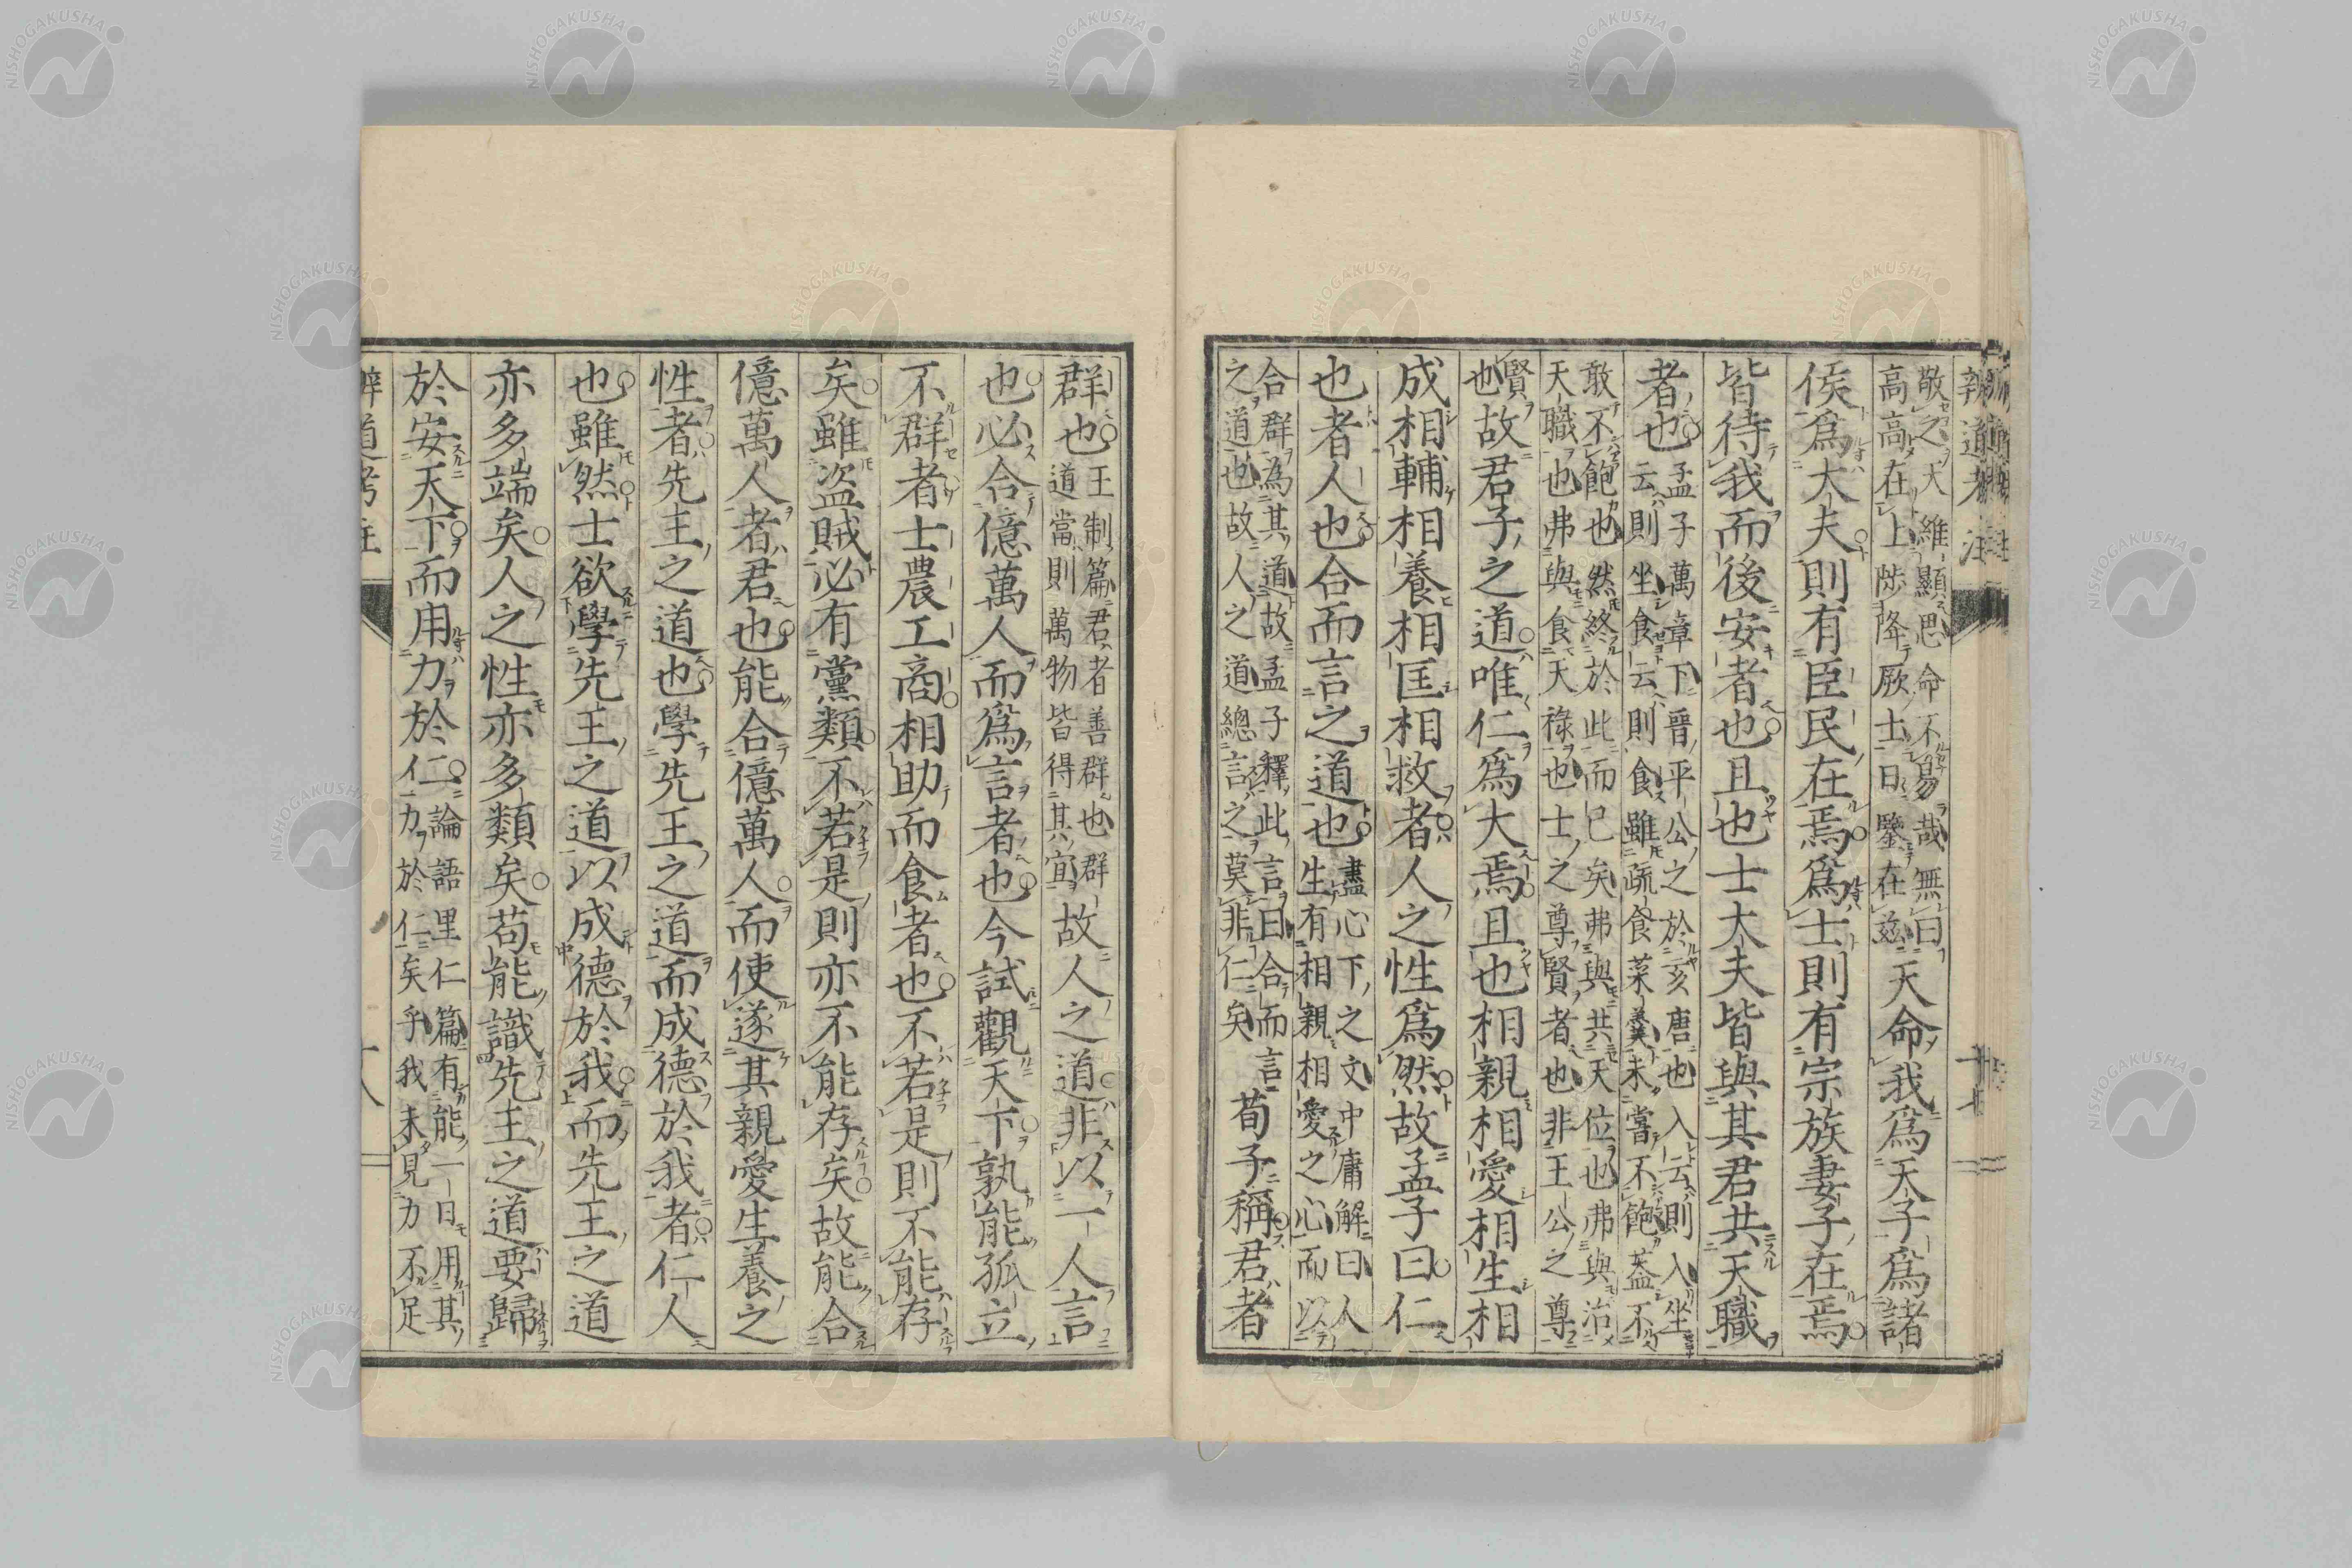 辨道考注
十七
敬之天維顯思命不易哉無曰
高高在上陟降厥士日鑒在茲
天命我爲天子爲諸
侯爲大夫則有臣民在焉爲士則有宗族妻子在焉
皆待我而後安者也且也士大夫皆與其君共天職
者也
孟子萬章下晉平公之於亥唐也入云則入坐
云則坐食云則食雖疏食菜羹未嘗不飽蓋不
敢不飽也然終於此而已矣弗與共天位也弗與治
天職也弗與食天祿也士之尊賢者也非王公之尊
賢也
故君子之道唯仁爲大焉且也相親相愛相生相
成相輔相養相匡相救者人之性爲然故孟子曰仁
也者人也合而言之道也
盡心下之文中庸解曰人
生有相親相愛之心而以
合群爲其道故孟子釋此言曰合而言
之道也故人之道總言之莫非仁矣
荀子稱君者
群也
王制篇君者善群也群
道當則萬物皆得其宜
故人之道非以一人言
也必合億萬人而爲言者也今試觀天下孰能孤立
不群者士農工商相助而食者也不若是則不能存
矣雖盜賊必有黨類不若是則亦不能存矣故能合
億萬人者君也能合億萬人而使遂其親愛生養之
性者先王之道也學先王之道而成德於我者仁人
也雖然士欲學先王之道以成德於我而先王之道
亦多端矣人之性亦多類矣苟能識先王之道要歸
於安天下而用力於仁
論語里仁篇有能一日用其
力於仁矣乎我未見力不足
辨道考注